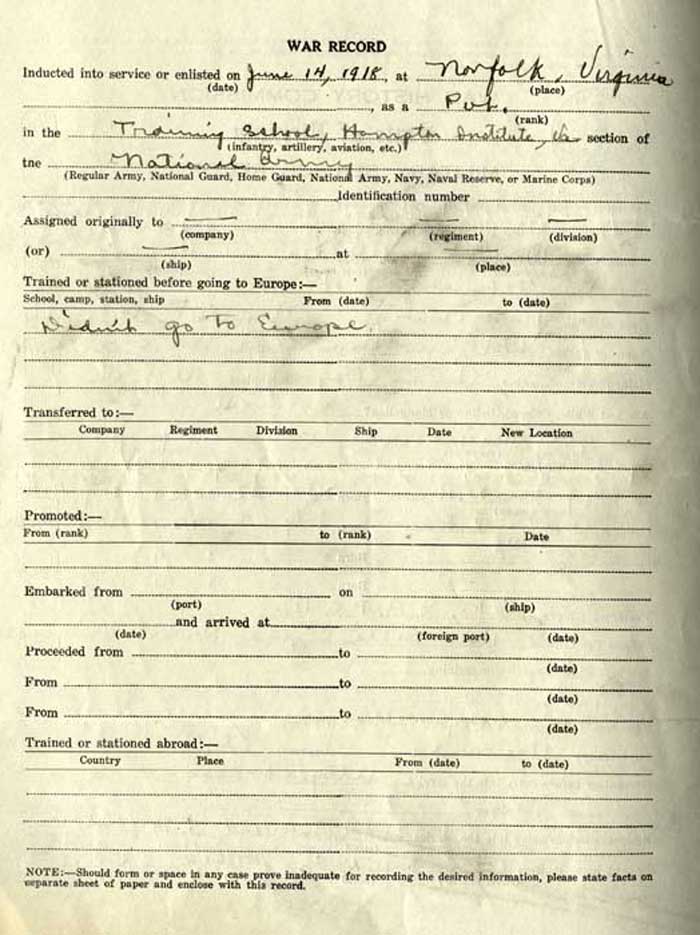 WAR RECORD
Inducted into service or enlisted on June 14, 1918, at Norfolk, Virginia
(date) (place)
, as a Pvt.
(rank)
in the Training School, Hampton Institute, Va section of
(infantry, artillery, aviation, etc.)
tne National Army
(Regular Army, National Guard, Home Guard, National Army, Navy, Naval Reserve, or Marine Corps)
Identification number
Assigned originally to — — —
(company) (regiment) (division)
(or) — at —
(ship) (place)
Trained or stationed before going to Europe:—
School, camp, station, ship From (date) to (date)
Didn't go to Europe.
Transferred to:—
Company Regiment Division Ship Date New Location
Promoted:—
From (rank) to (rank) Date
Embarked from on
(port) (ship)
and arrived at
(date) (foreign port) (date)
Proceeded from to
(date)
From to
(date)
From to
(date)
Trained or stationed abroad:—
Country Place From (date) to (date)
NOTE:—Should form or space in any case prove inadequate for recording the desired information, please state facts on
separate sheet of paper and enclose with this record.